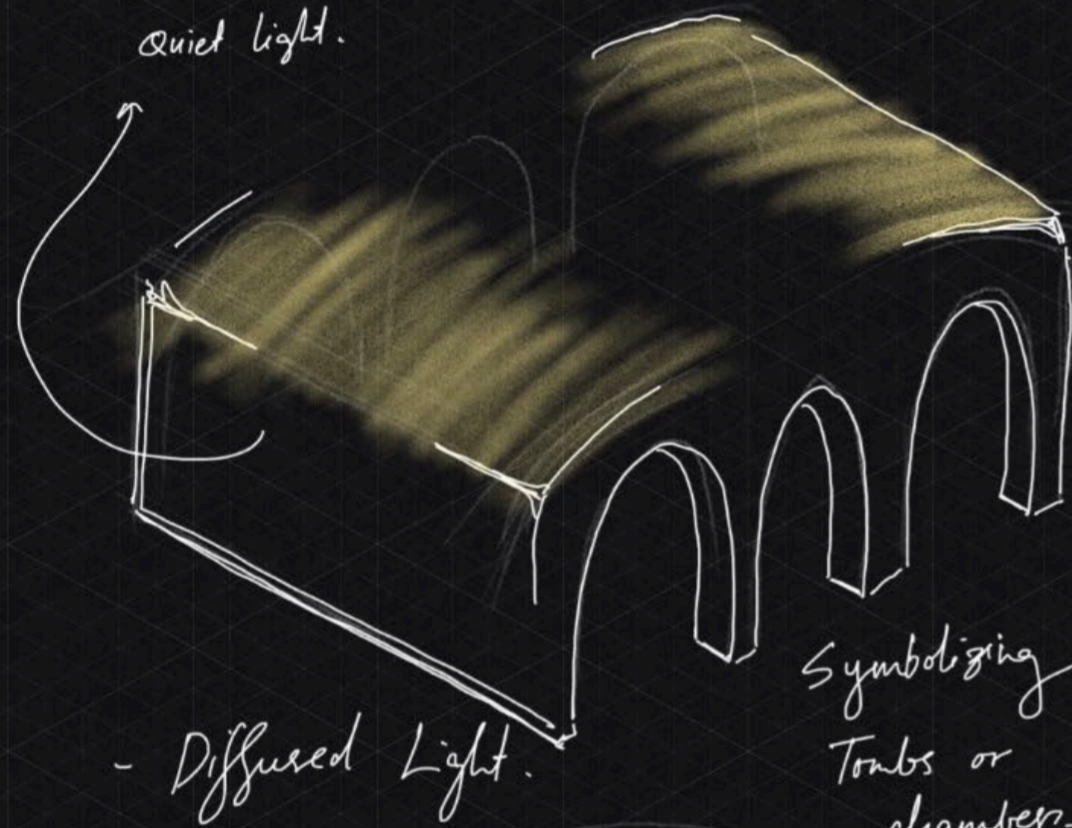 Quiet light.
- Diffused Light.
Symbolizing
Tombs or
chambers.